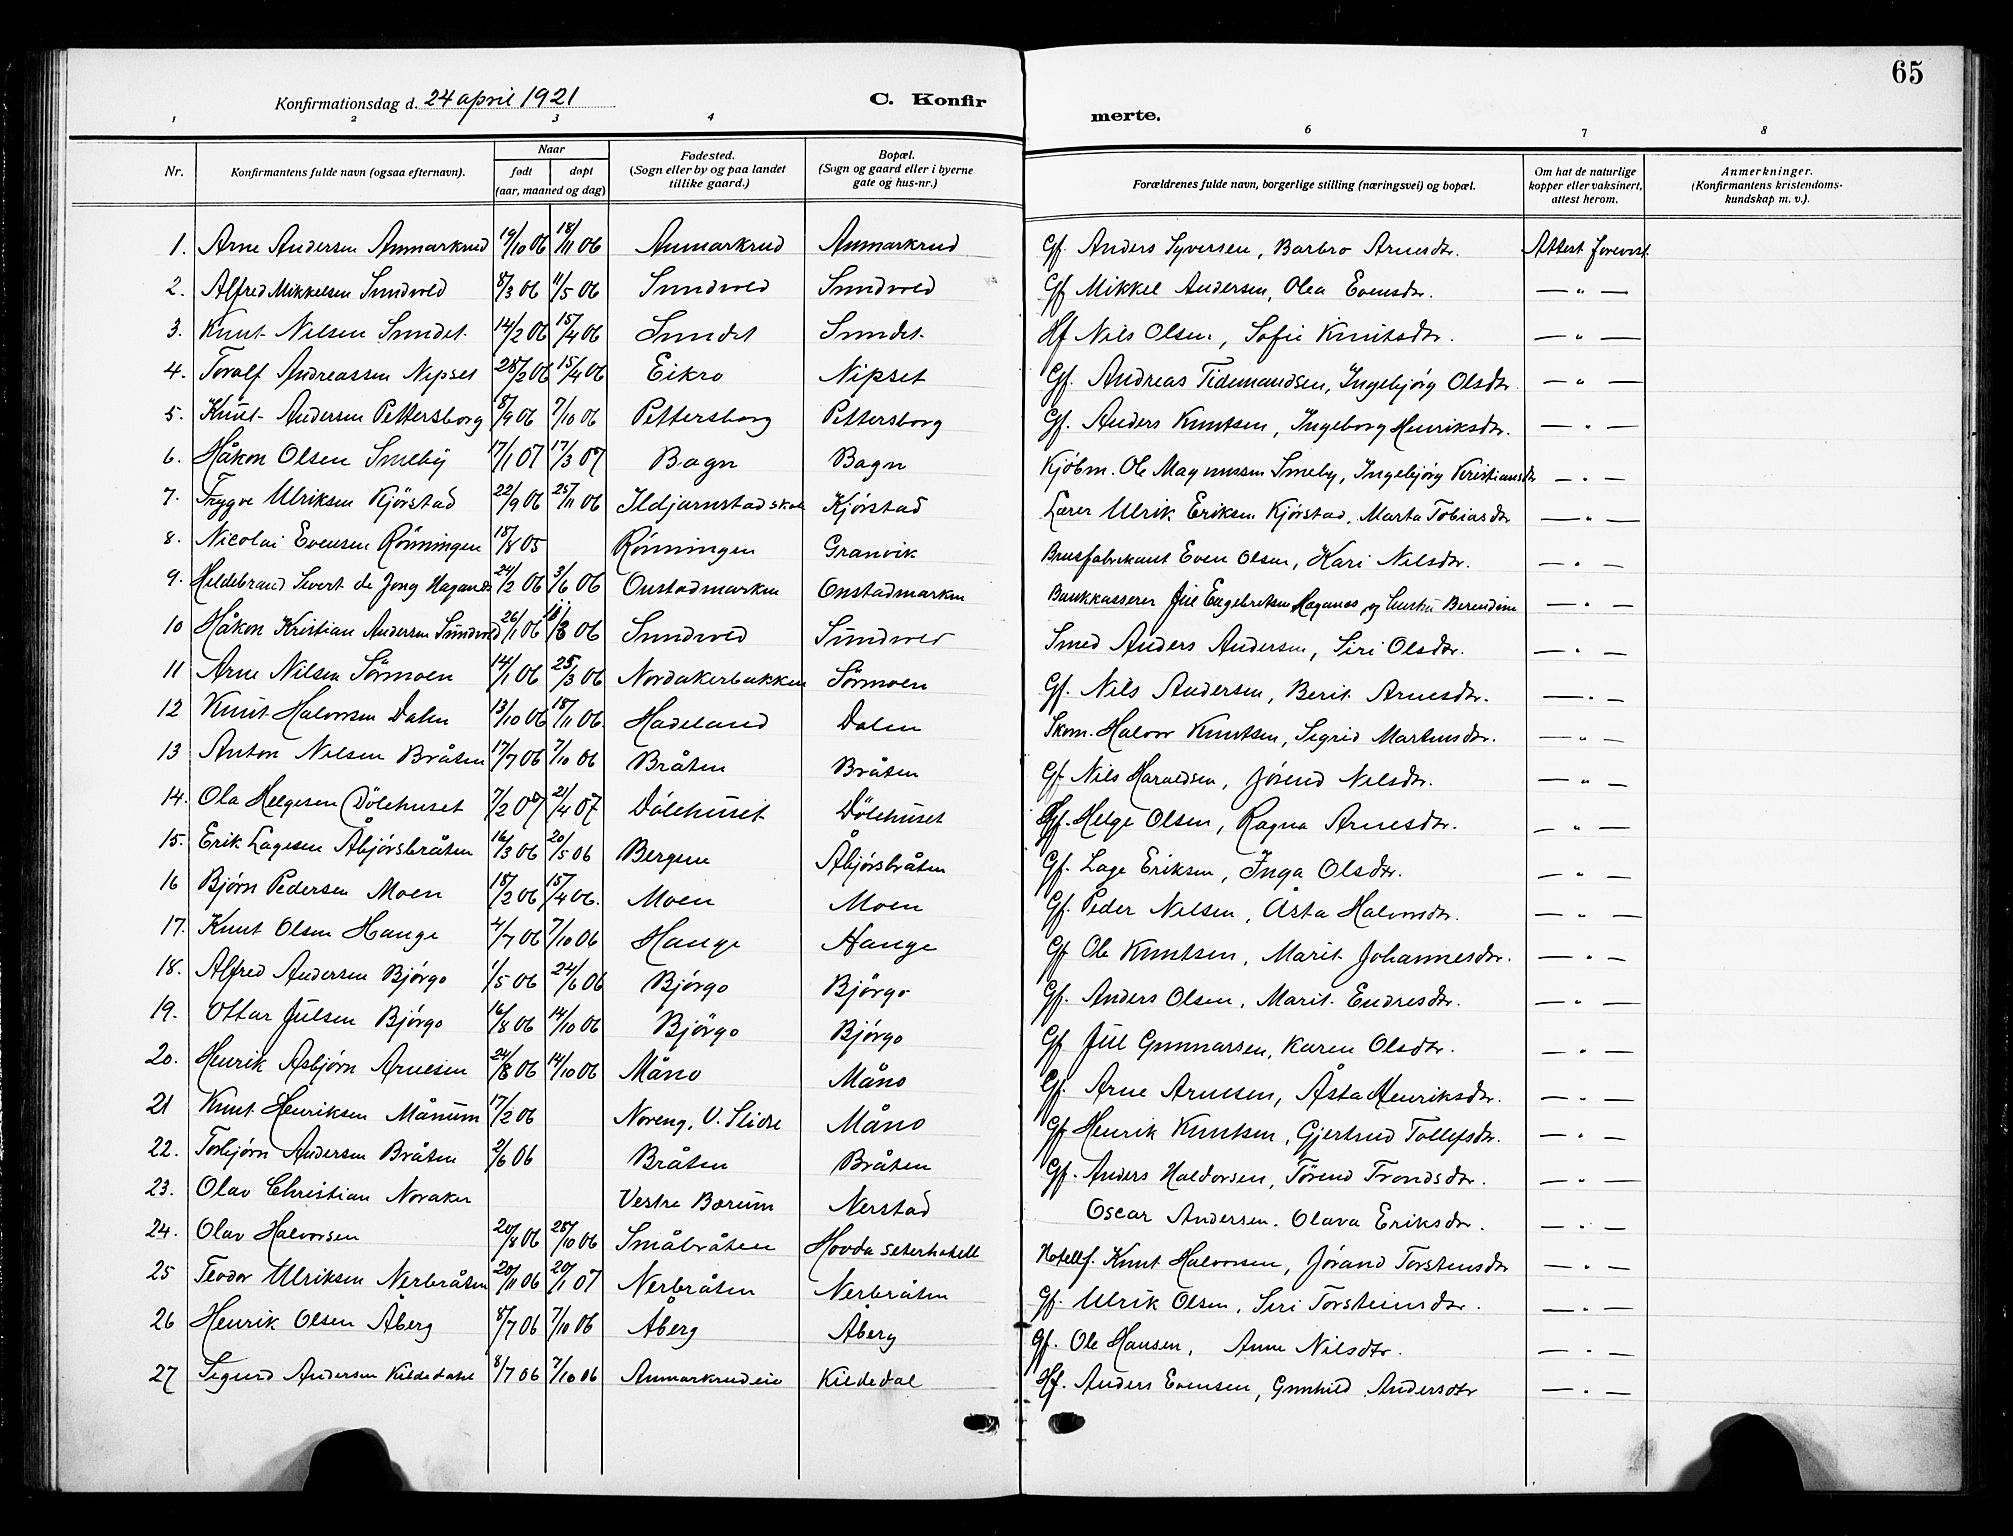 65
Konfirmationsdag d. 24 april 1921 C. Konfir merte.
1 2 3 4 6 7 8
Nr. Konfirmantens fulde navn (ogsaa efternavn). Naar født døpt (aar, maaned og dag) Fødested. (Sogn eller by og paa landet tillike gaard.) Bopæl. (Sogn og gaard eller i byerne gate og hus-nr.) Forældrenes fulde navn, borgerlige stilling (næringsvei) og bopæl. Om hat de naturlige kopper eller vaksinert, attest herom. Anmerkninger. (Konfirmantens kristendoms-kundskap m. v.).
1. Arne Andersen Anmarkrud 19/10 06 18/11 06 Anmarkrud Anmarkrud Gf. Anders Syversen, Barbro Arnesdtr. Attest forevist.
2. Alfred Mikkelsen Sundvold 8/3 06 11/5 06 Sundvold Sundvold Gf Mikkel Andersen, Olea Evensdtr. — " —
3. Knut Nilsen Sundet. 14/2 06 15/4 06 Sundet Sundet. Hf Nils Olsen, Sofie Knutsdtr. — " —
4. Toralf Andreassen Nipset 28/2 06 15/4 06 Eikro Nipset Gf. Andreas Tidemandsen, Ingebjørg Olsdtr. — " —
5. Knut Andersen Pettersborg 8/9 06 7/10 06 Pettersborg Pettersborg Gf. Anders Knutsen, Ingeborg Henriksdtr. — " —
6. Håkon Olsen Smeby 17/1 07 17/3 07 Bagn Bagn Kjøbm. Ole Magnussen Smeby, Ingebjørg Kristiansdtr — " —
7. Trygve Ulriksen Kjörstad 22/9 06 25/11 06 Ildjarnstad skole Kjörstad Lærer Ulrik Eriksen Kjörstad, Marta Tobiasdtr — " —
8. Nicolai Evensen Rönningen 18/8 05 Rönningen Granvik Brusfabrikant Even Olsen, Kari Nilsdtr. — " —
9. Hildebrand Sivert de Jong Haganes 24/2 06 3/6 06 Onstadmarken Onstadmarken Bankkasserer Jul Engebretsen Haganes og hustru Berendine — " —
10 Håkon Kristian Andersen Sundvold 26/1 06 18/3 06 Sundvold Sundvold Smed Anders Andersen, Siri Olsdtr. — " —
11 Arne Nilsen Sörmoen 14/1 06 25/3 06 Nordakerbakken Sörmoen Gf. Nils Andersen, Berit Arnesdtr. — " —
12 Knut Halvorsen Dalen 13/10 06 18/11 06. Hadeland Dalen Skom. Halvor Knutsen, Sigrid Martinsdtr. — " —
13 Anton Nilsen Bråten 17/7 06 7/10 06 Bråten Bråten Gf Nils Haraldsen, Jörend Nilsdtr. — " —
14. Ola Helgesen Dölehuset 7/2 07 21/4 07 Dölehuset Dölehuset Gf. Helge Olsen, Ragna Arnesdtr. — " —
15. Erik Lagesen Åbjörsbråten 16/3 06 20/5 06 Bergene Åbjörsbråten Gf. Lage Eriksen, Inga Olsdtr. — " —
16 Bjørn Pedersen Moen 18/2 06 15/4 06. Moen Moen Gf. Peder Nilsen, Åsta Halvorsdtr. — " —
17. Knut Olsen Hauge 4/7 06 7/10 06 Hauge Hauge Gf Ole Knutsen, Marit Johannesdtr. — " —
18. Alfred Andersen Bjørgo 1/5 06 24/6 06 Bjørgo Bjørgo Gf. Anders Olsen, Marit Endresdtr. — " —
19. Ottar Julsen Bjørgo 16/8 06 14/10 06 Bjørgo Bjørgo Gf Jul Gunnarsen, Karen Olsdtr. — " —
20. Henrik Asbjørn Arnesen 24/8 06 14/10 06 Måno Måno Gf. Arne Arnesen, Åsta Henriksdtr. — " —
21 Knut Henriksen Månum 17/2 06 Noreng, V. Slidre Måno Gf Henrik Knutsen, Gjertrud Tollefsdtr. — " —
22. Torbjørn Andersen Bråten 2/6 06 Bråten Bråten Gf. Anders Haldorsen, Törend Trondsdtr. — " —
23. Olav Christian Noraker Vestre Bærum Nerstad Oscar Andersen. Olava Eriksdtr. — " —
24. Olav Halvorsen 20/8 06 28/10 06 Småbråten Hovda seterhotell Hotellf. Knut Halvorsen, Jörand Torstensdtr — " —
25 Teodor Ulriksen Nerbråten 20/11 06 20/1 07 Nerbråten Nerbråten Gf. Ulrik Olsen, Siri Torsteinsdtr. — " —
26 Henrik Olsen Åberg 8/7 06 7/10 06 Åberg Åberg Gf. Ole Hansen, Anne Nilsdtr. — " —
27 Sigurd Andersen Kildedahl 8/7 06 7/10 06 Anmarkrudeie Kildedal Hf. Anders Evensen, Gunhild Andersdtr — " —